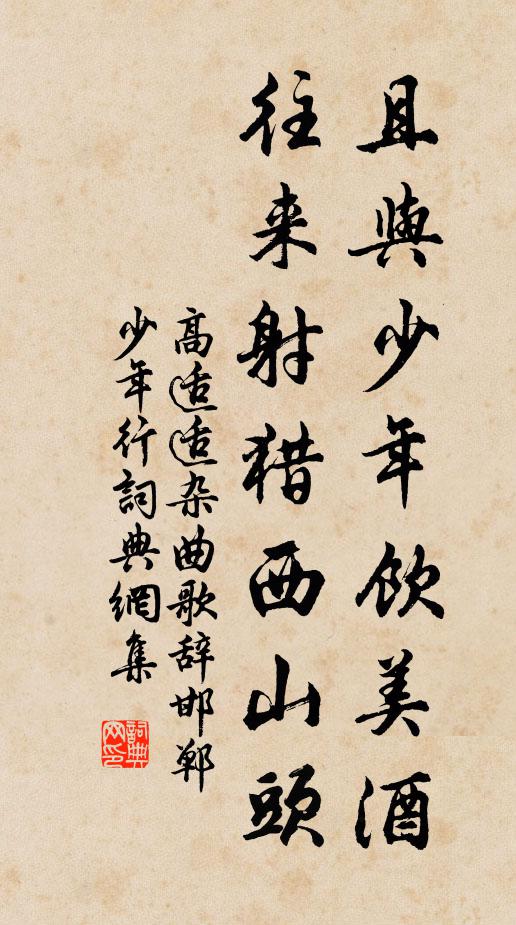 且與少年飲美酒
往来射猎西山頭
高适适杂曲歌辞邯郸
少年行詞典網集
詞典
网印